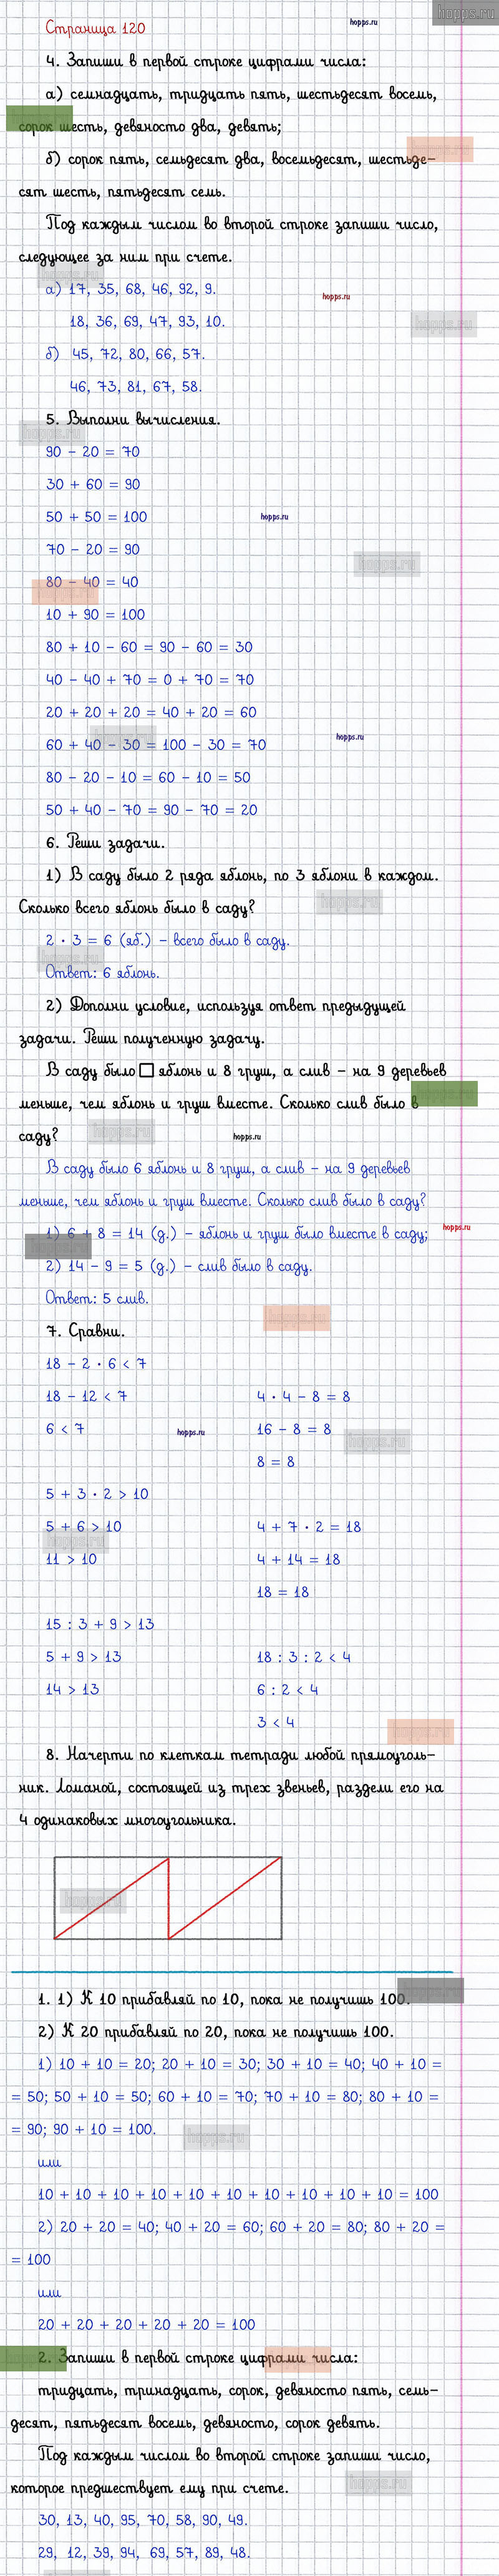 hopps.ru
hopps.ru
Страница 120
4. Запиши в первой строке цифрами числа:
а) семнадцать, тридцать пять, шестьдесят восемь,
сорок шесть, девяносто два, девять;
hopps.ru
б) сорок пять, семьдесят два, восемьдесят, шестьде-
сят шесть, пятьдесят семь.
Под каждым числом во второй строке запиши число,
следующее за ним при счете.
hopps.ru
а) 17, 35, 68, 46, 92, 9.
hopps.ru
18, 36, 69, 47, 93, 10.
hopps.ru
б) 45, 72, 80, 66, 57.
46, 73, 81, 67, 58.
5. Выполни вычисления.
hopps.ru
90 - 20 = 70
30 + 60 = 90
50 + 50 = 100
hopps.ru
70 - 20 = 90
hopps.ru
80 - 40 = 40
hopps.ru
10 + 90 = 100
80 + 10 - 60 = 90 - 60 = 30
40 - 40 + 70 = 0 + 70 = 70
20 + 20 + 20 = 40 + 20 = 60
hopps.ru
60 + 40 - 30 = 100 - 30 = 70
hopps.ru
80 - 20 - 10 = 60 - 10 = 50
50 + 40 - 70 = 90 - 70 = 20
6. Реши задачи.
1) В саду было 2 ряда яблонь, по 3 яблони в каждом.
Сколько всего яблонь было в саду?
hopps.ru
2 · 3 = 6 (яб.) - всего было в саду.
hopps.ru
Ответ: 6 яблонь.
2) Дополни условие, используя ответ предыдущей
задачи. Реши полученную задачу.
В саду было □ яблонь и 8 груш, а слив - на 9 деревьев
меньше, чем яблонь и груш вместе. Сколько слив было в
саду?
hopps.ru
hopps.ru
В саду было 6 яблонь и 8 груш, а слив - на 9 деревьев
меньше, чем яблонь и груш вместе. Сколько слив было в саду?
hopps.ru
1) 6 + 8 = 14 (д.) - яблонь и груш было вместе в саду;
2) 14 - 9 = 5 (д.) - слив было в саду.
Ответ: 5 слив.
hopps.ru
7. Сравни.
18 - 2 · 6 < 7
18 - 12 < 7
4 · 4 - 8 = 8
6 < 7
hopps.ru
16 - 8 = 8
hopps.ru
8 = 8
5 + 3 · 2 > 10
5 + 6 > 10
4 + 7 · 2 = 18
hopps.ru
11 > 10
4 + 14 = 18
18 = 18
15 : 3 + 9 > 13
5 + 9 > 13
18 : 3 : 2 < 4
14 > 13
6 : 2 < 4
3 < 4
hopps.ru
8. Начерти по клеткам тетради любой прямоуголь-
ник. Ломаной, состоящей из трех звеньев, раздели его на
4 одинаковых многоугольника.
hopps.ru
1. 1) К 10 прибавляй по 10, пока не получишь 100.
2) К 20 прибавляй по 20, пока не получишь 100.
1) 10 + 10 = 20; 20 + 10 = 30; 30 + 10 = 40; 40 + 10 =
= 50; 50 + 10 = 50; 60 + 10 = 70; 70 + 10 = 80; 80 + 10 =
= 90; 90 + 10 = 100.
hopps.ru
или
10 + 10 + 10 + 10 + 10 + 10 + 10 + 10 + 10 + 10 = 100
2) 20 + 20 = 40; 40 + 20 = 60; 60 + 20 = 80; 80 + 20 =
= 100
или
20 + 20 + 20 + 20 + 20 = 100
2. Запиши в первой строке цифрами числа:
тридцать, тринадцать, сорок, девяносто пять, семь-
десят, пятьдесят восемь, девяносто, сорок девять.
Под каждым числом во второй строке запиши число,
которое предшествует ему при счете.
hopps.ru
30, 13, 40, 95, 70, 58, 90, 49.
29, 12, 39, 94, 69, 57, 89, 48.